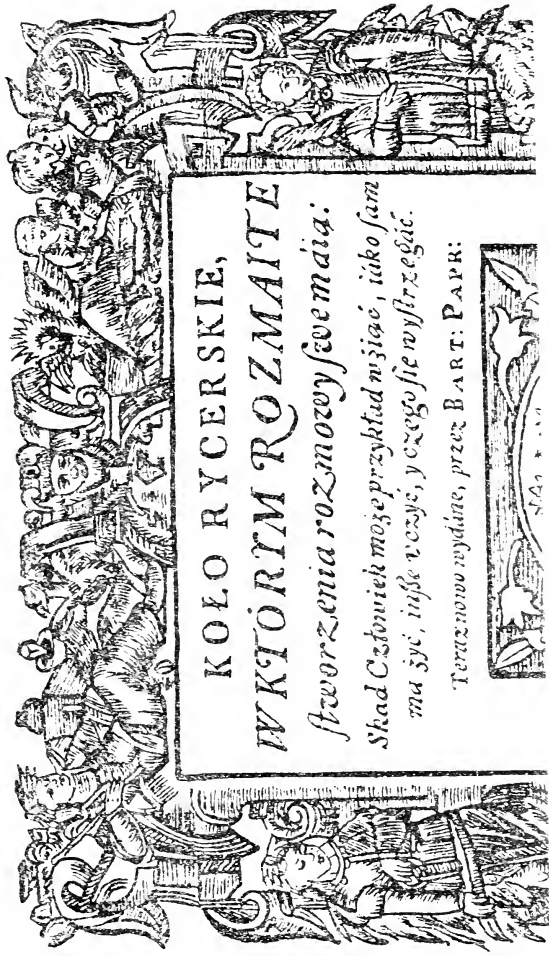 KOŁO RYCERSKIE,
W KTÓRYM ROZMAITE
ſtworzenia rozmowy ſwe máią:
Skąd Człowiek może przykład wziąć, iáko ſam
ma żyć, inſze vczyć, y czego ſie wyſtrzegáć.
Teraz nowo wydáne, przez BART: PAPR: